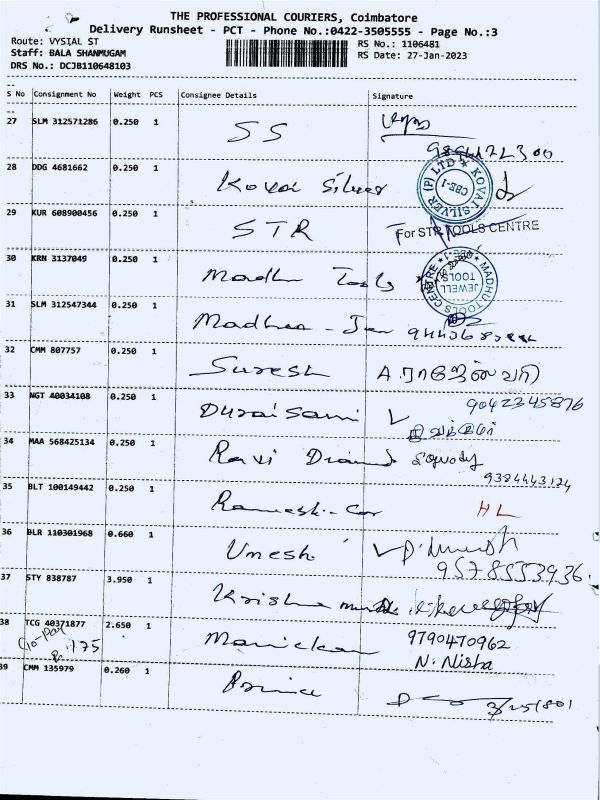 THE PROFESSIONAL COURIERS, Coimbatore
Delivery Runsheet - PCT - Phone No.:0422-3505555 - Page No.:3
Route: VYSIAL ST
RS No.: 1106481
Staff: BALA SHANMUGAM
RS Date: 27-Jan-2023
DRS No.: DCJB110648103
S No Consignment No Weight PCS Consignee Details Signature
27 SLM 312571286 0.250 1 SS
28 DDG 4681662 0.250 1 Kovai Silver
KOVAI SILVER (P) LTD CBE-1
29 KUR 608900456 0.250 1 STR For STR TOOLS CENTRE
30 KRN 3137049 0.250 1 Madhu Tools
MADHU TOOLS CENTRE JEWELL TOOLS
31 SLM 312547344 0.250 1 Madhu -
32 CMM 807757 0.250 1 Suresh
33 NGT 40034108 0.250 1 Duraisami 9042345876
34 MAA 568425134 0.250 1 Ravi
9384443124
35 BLT 100149442 0.250 1 Ramesh-Car HL
36 BLR 110301968 0.660 1 Umesh
9578553936
37 STY 838787 3.950 1 Krishna
38 TCG 40371877 2.650 1 Manickam 9790470962
To-Pay 175
N. Nisha
39 CMM 135979 0.260 1 Prince